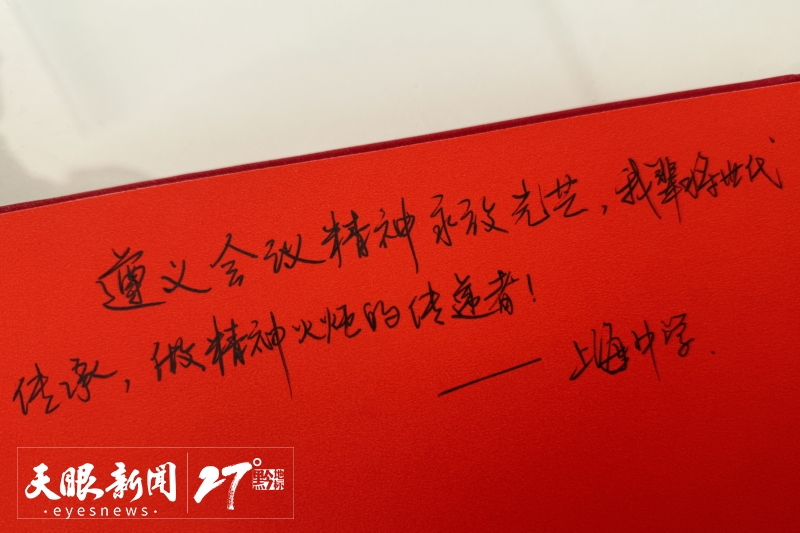 遵义会议精神永放光芒，我辈将世代
传承，做精神火炬的传递者！
——上海中学.
天眼新闻
·eyesnews·
27°
黔地标